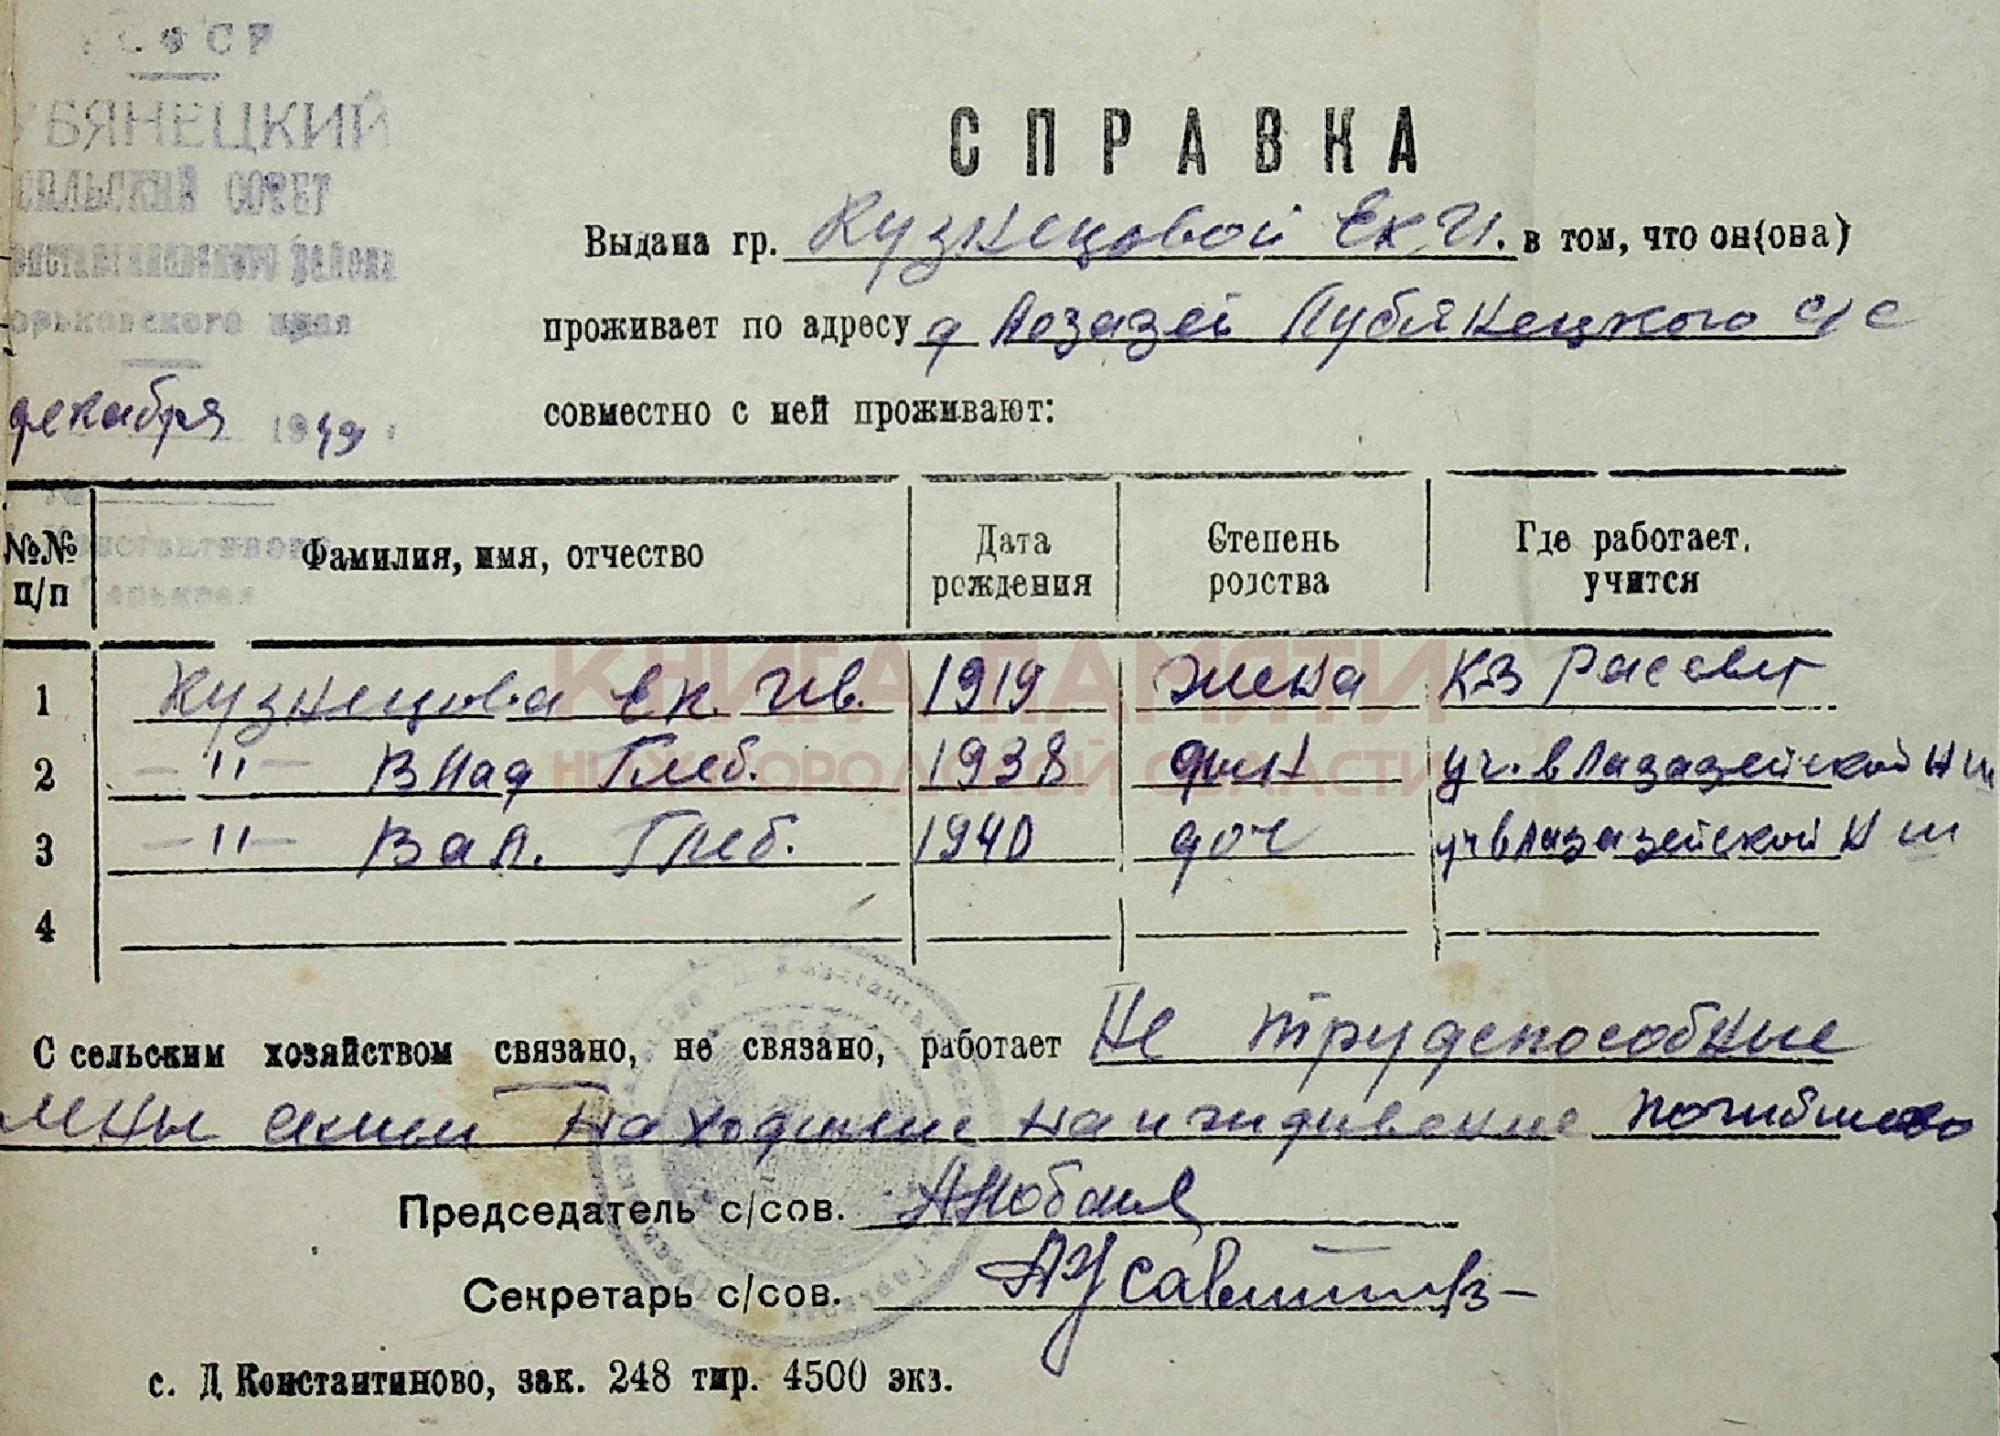 РСФСР
УБЯНЕЦКИЙ
СЕЛЬСКИЙ СОВЕТ
онстантиновского района
орьковского края
декабря 1949
№
онстантиново
орьковая
СПРАВКА
Выдана гр. Кузнецовой Ек. И. в том, что он(она)
проживает по адресу д Лозазей Лубянецкого с/с
совместно с ней проживают:
№№ п/п Фамилия, имя, отчество Дата рождения Степень родства Где работает, учится
1 Кузнецова Ек. Ив. 1919 жена К-з Расевет
2 -"- Влад Глеб. 1938 сын уч. в Лазазейской Н ш
3 -"- Вал. Глеб. 1940 доч уч в Лазазейской Н ш
4
С сельским хозяйством связано, не связано, работает Не трудспособные
мны находился на иждивение погибшево
Председатель с/сов.
Секретарь с/сов.
с. Д Константиново, зак. 248 тир. 4500 экз.
КНИГА ПАМЯТИ
НИЖЕГОРОДСКОЙ ОБЛАСТИ